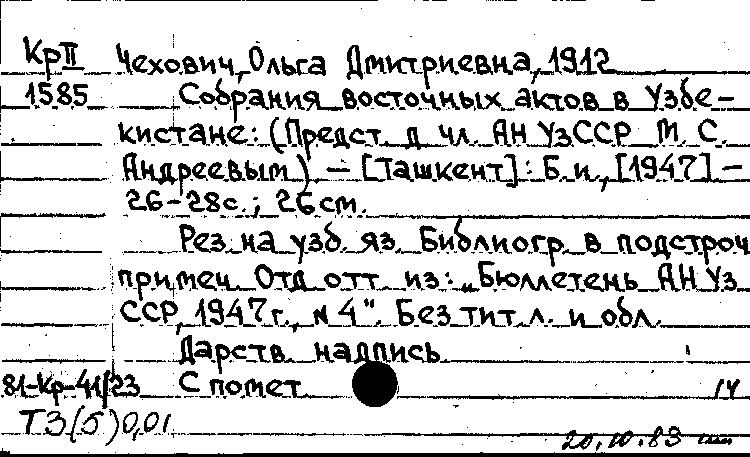 КрII Чехович, Ольга Дмитриевна, 1912
1585 Собрания восточных актов в Узбе-
кистане: (Предст. д. чл. АН УзССР М. С.
Андреевым). — [Ташкент]: Б.и., [1947] —
26-28с.; 26см.
Рез. на узб. яз. Библиогр. в подстроч.
примеч. Отд. отт. из: „Бюллетень АН Уз
ССР, 1947г., № 4". Без тит. л. и обл.
Дарств. надпись
81-Кр-41/23 С помет. 14
ТЗ(5)0,01
20.10.83